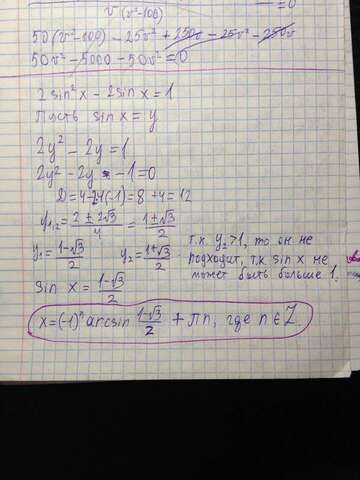 v(v²-100) = 0
50(v²-100) - 25v² + 250v - 25v² - 250v
50v² - 5000 - 50v² = 0
2 sin² x - 2 sin x = 1
Пусть sin x = y
2y² - 2y = 1
2y² - 2y - 1 = 0
D = 4 - 24(-1) = 8 + 4 = 12
y₁,₂ = (2 ± 2√3)/4 = (1 ± √3)/2
y₁ = (1-√3)/2 y₂ = (1+√3)/2 - т.к. y₂ > 1, то он не
подходит, т.к sin x не
может быть больше 1.
sin x = (1-√3)/2
x = (-1)ⁿ arcsin (1-√3)/2 + πn, где n ∈ Z